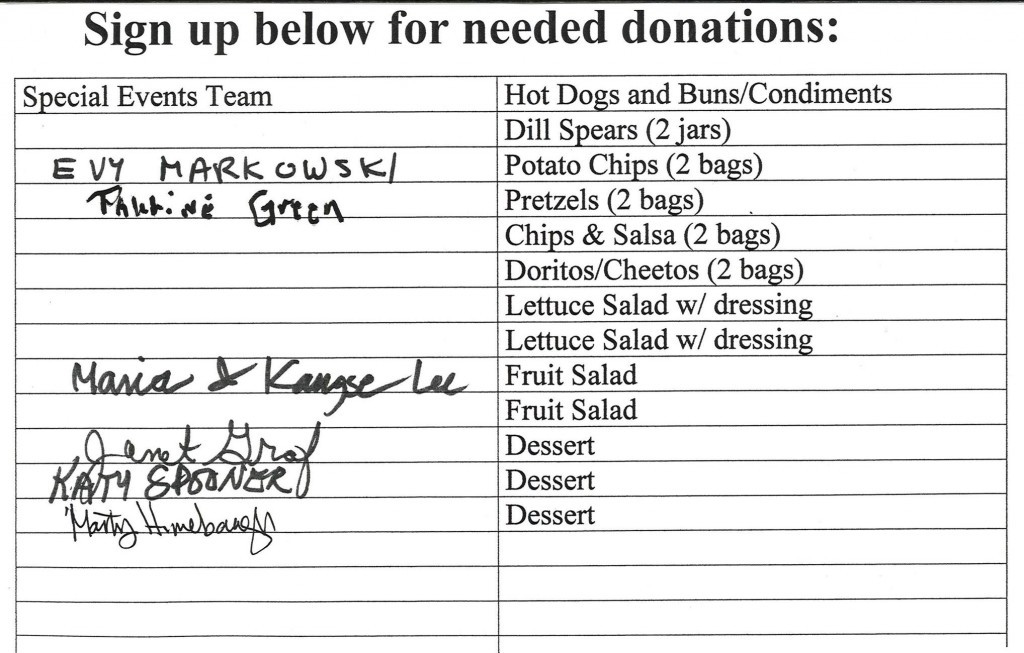 Sign up below for needed donations:
Special Events Team Hot Dogs and Buns/Condiments
Dill Spears (2 jars)
EVY MARKOWSKI Potato Chips (2 bags)
Green Pretzels (2 bags)
Chips & Salsa (2 bags)
Doritos/Cheetos (2 bags)
Lettuce Salad w/ dressing
Lettuce Salad w/ dressing
Maria & Lee Fruit Salad
Fruit Salad
Janet Graf Dessert
KATY SPOONER Dessert
Marty Dessert